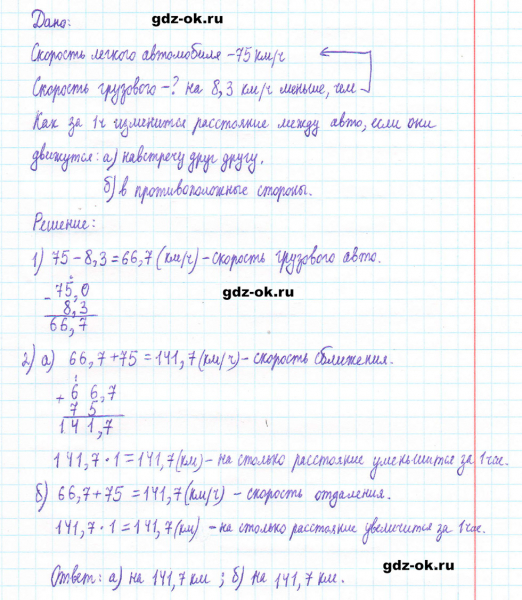 gdz-ok.ru
Дано:
Скорость легкого автомобиля - 75 км/ч
Скорость грузового - ? на 8,3 км/ч меньше, чем
Как за 1 ч изменится расстояние между авто, если они
движутся: а) навстречу друг другу.
б) в противоположные стороны.
Решение:
1) 75 - 8,3 = 66,7 (км/ч) - скорость грузового авто.
gdz-ok.ru
- 75,0
8,3
66,7
2) а) 66,7 + 75 = 141,7 (км/ч) - скорость сближения.
1
+ 6 6,7
7 5
1 4 1,7
141,7 · 1 = 141,7 (км) - на столько расстояние уменьшится за 1 час.
б) 66,7 + 75 = 141,7 (км/ч) - скорость отдаления.
141,7 · 1 = 141,7 (км) - на столько расстояние увеличится за 1 час.
gdz-ok.ru
Ответ: а) на 141,7 км ; б) на 141,7 км.